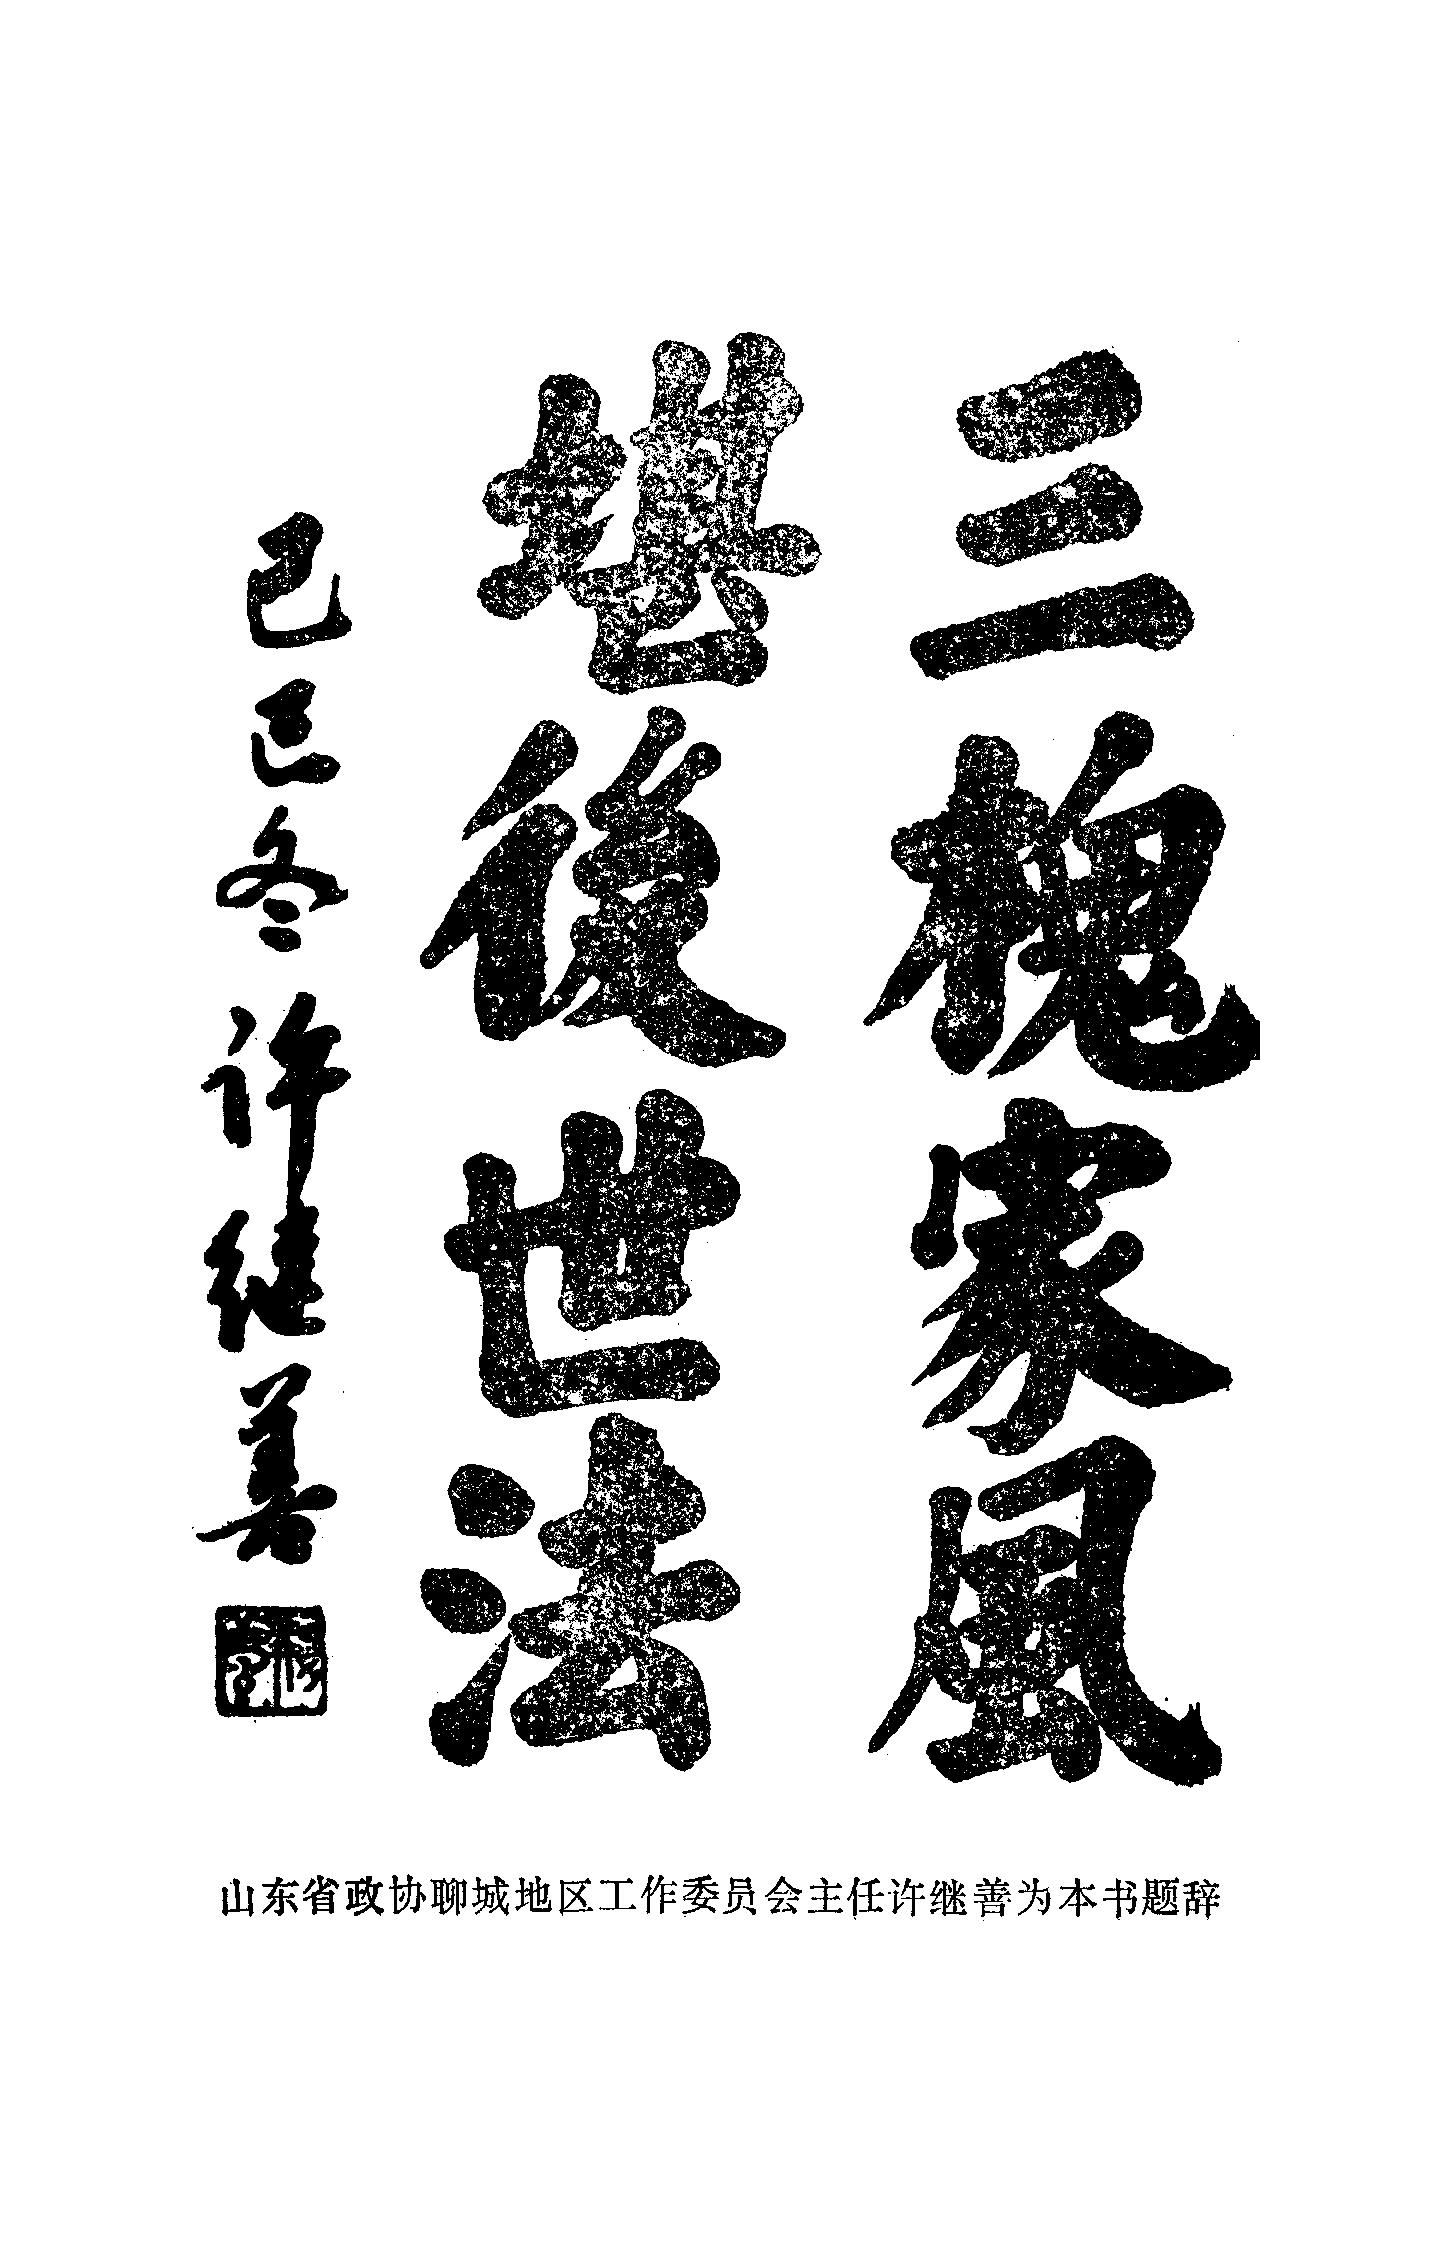 三槐家風
堪後世法
己巳冬许继善
山东省政协聊城地区工作委员会主任许继善为本书题辞